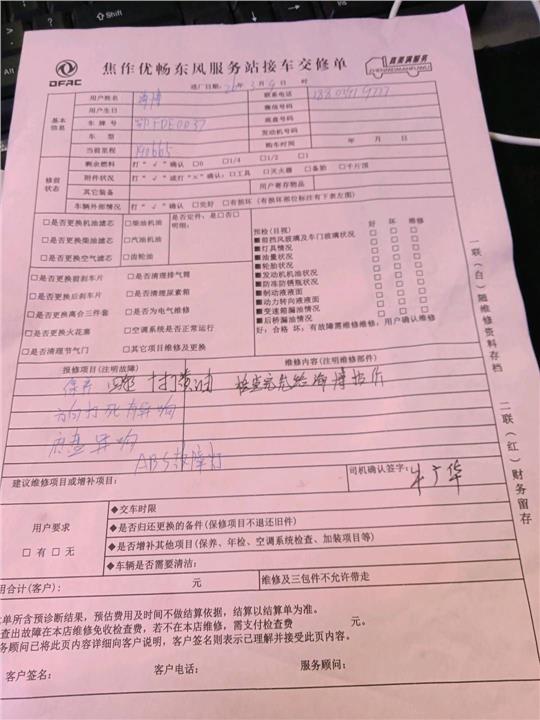 DFAC
焦作优畅东风服务站接车交修单
真美满服务
ZHENMEIMANFUWU
进厂日期: 年3月9日 时
基本信息
用户姓名
联系电话
用户生日
微信号码
车牌号
底盘号码
车型
发动机号码
当前里程
购车时间 年 月 日
修前状态
剩余燃料 打“√”确认 □0 □1/4 □1/2 □1
附件状况 打“√”或打“×”确认: □工具 □灭火器 □备胎 □千斤顶
其它装备
用户寄存物品
车辆外部情况 打“√”确认 □完好 □有损坏(有损坏部位标注有下表左图)
□是否更换机油滤芯 □柴油机油
□是否更换柴油滤芯 □汽油机油
□是否更换空气滤芯 □齿轮油
是否定件: 是□否□
明细:
□是否更换前刹车片 □是否清理排气筒
□是否更换后刹车片 □是否清理尿素箱
□是否更换离合三件套 □是否为电气维修
□是否更换火花塞 □空调系统是否正常运行
□是否清理节气门 □其它项目维修及更换
预检(目视) 好 坏 维修
■前挡风玻璃及车门玻璃状况 □ □ □
■灯具情况 □ □ □
■油量状况 □ □ □
■轮胎状况 □ □ □
■发动机机油状况 □ □ □
■防冻防锈瓶状况 □ □ □
■制动液液面 □ □ □
■动力转向液液面 □ □ □
■变速箱漏油情况 □ □ □
■后桥漏油情况 □ □ □
好: 合格 坏: 有故障需维修维修, 用户确认维修
报修项目(注明故障)
维修内容(注明维修部件)
保养 打黄油 检查完先给海博报价
方向打死有异响
底盘异响
ABS故障灯
建议维修项目或增补项目:
司机确认签字: 牛广华
用户要求
□有 □无
◆交车时限
◆是否归还更换的备件(保修项目不退还旧件)
◆是否增补其他项目(保养、年检、空调系统检查、加装项目等)
◆车辆是否需要清洁:
用合计(客户): 元
维修及三包件不允许带走
单所含预诊断结果,预估费用及时间不做结算依据,结算以结算单为准。
查出故障在本店维修免收检查费,若不在本店维修,需支付检查费 元。
务顾问已将此页内容详细向客户说明,客户签名则表示已理解并接受此页内容。
客户签名: 客户电话: 服务顾问:
一联(白)随维修资料存档
二联(红)财务留存